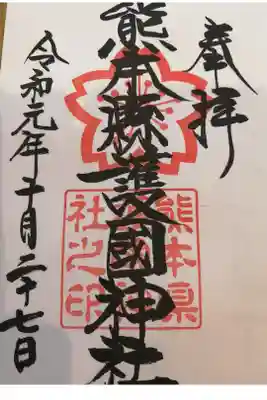 奉拝
熊本縣護國神社
熊本県
社之印
令和元年十月二十七日